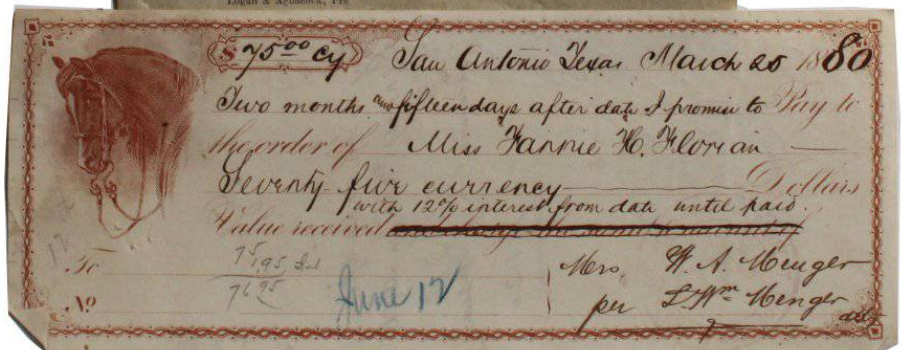 Logan &
$ 75 00 Cy San Antonio Texas March 25 1880
Two months and fifteen days after date I promise to Pay to
the order of Miss Fannie H. Florian
Seventy five currency Dollars
with 12% interest from date until paid.
Value received
To
75
1.95 Int
76.95
12
No
June 12
Mrs. W. A. Menger
per L. Wm Menger